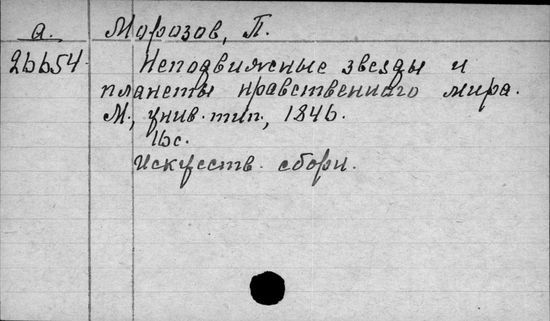 а. Морозов, П.
26654. Неподвижные звезды и
планеты нравственного мира.
М., унив. тип., 1846.
16с.
Искусств. сборн.